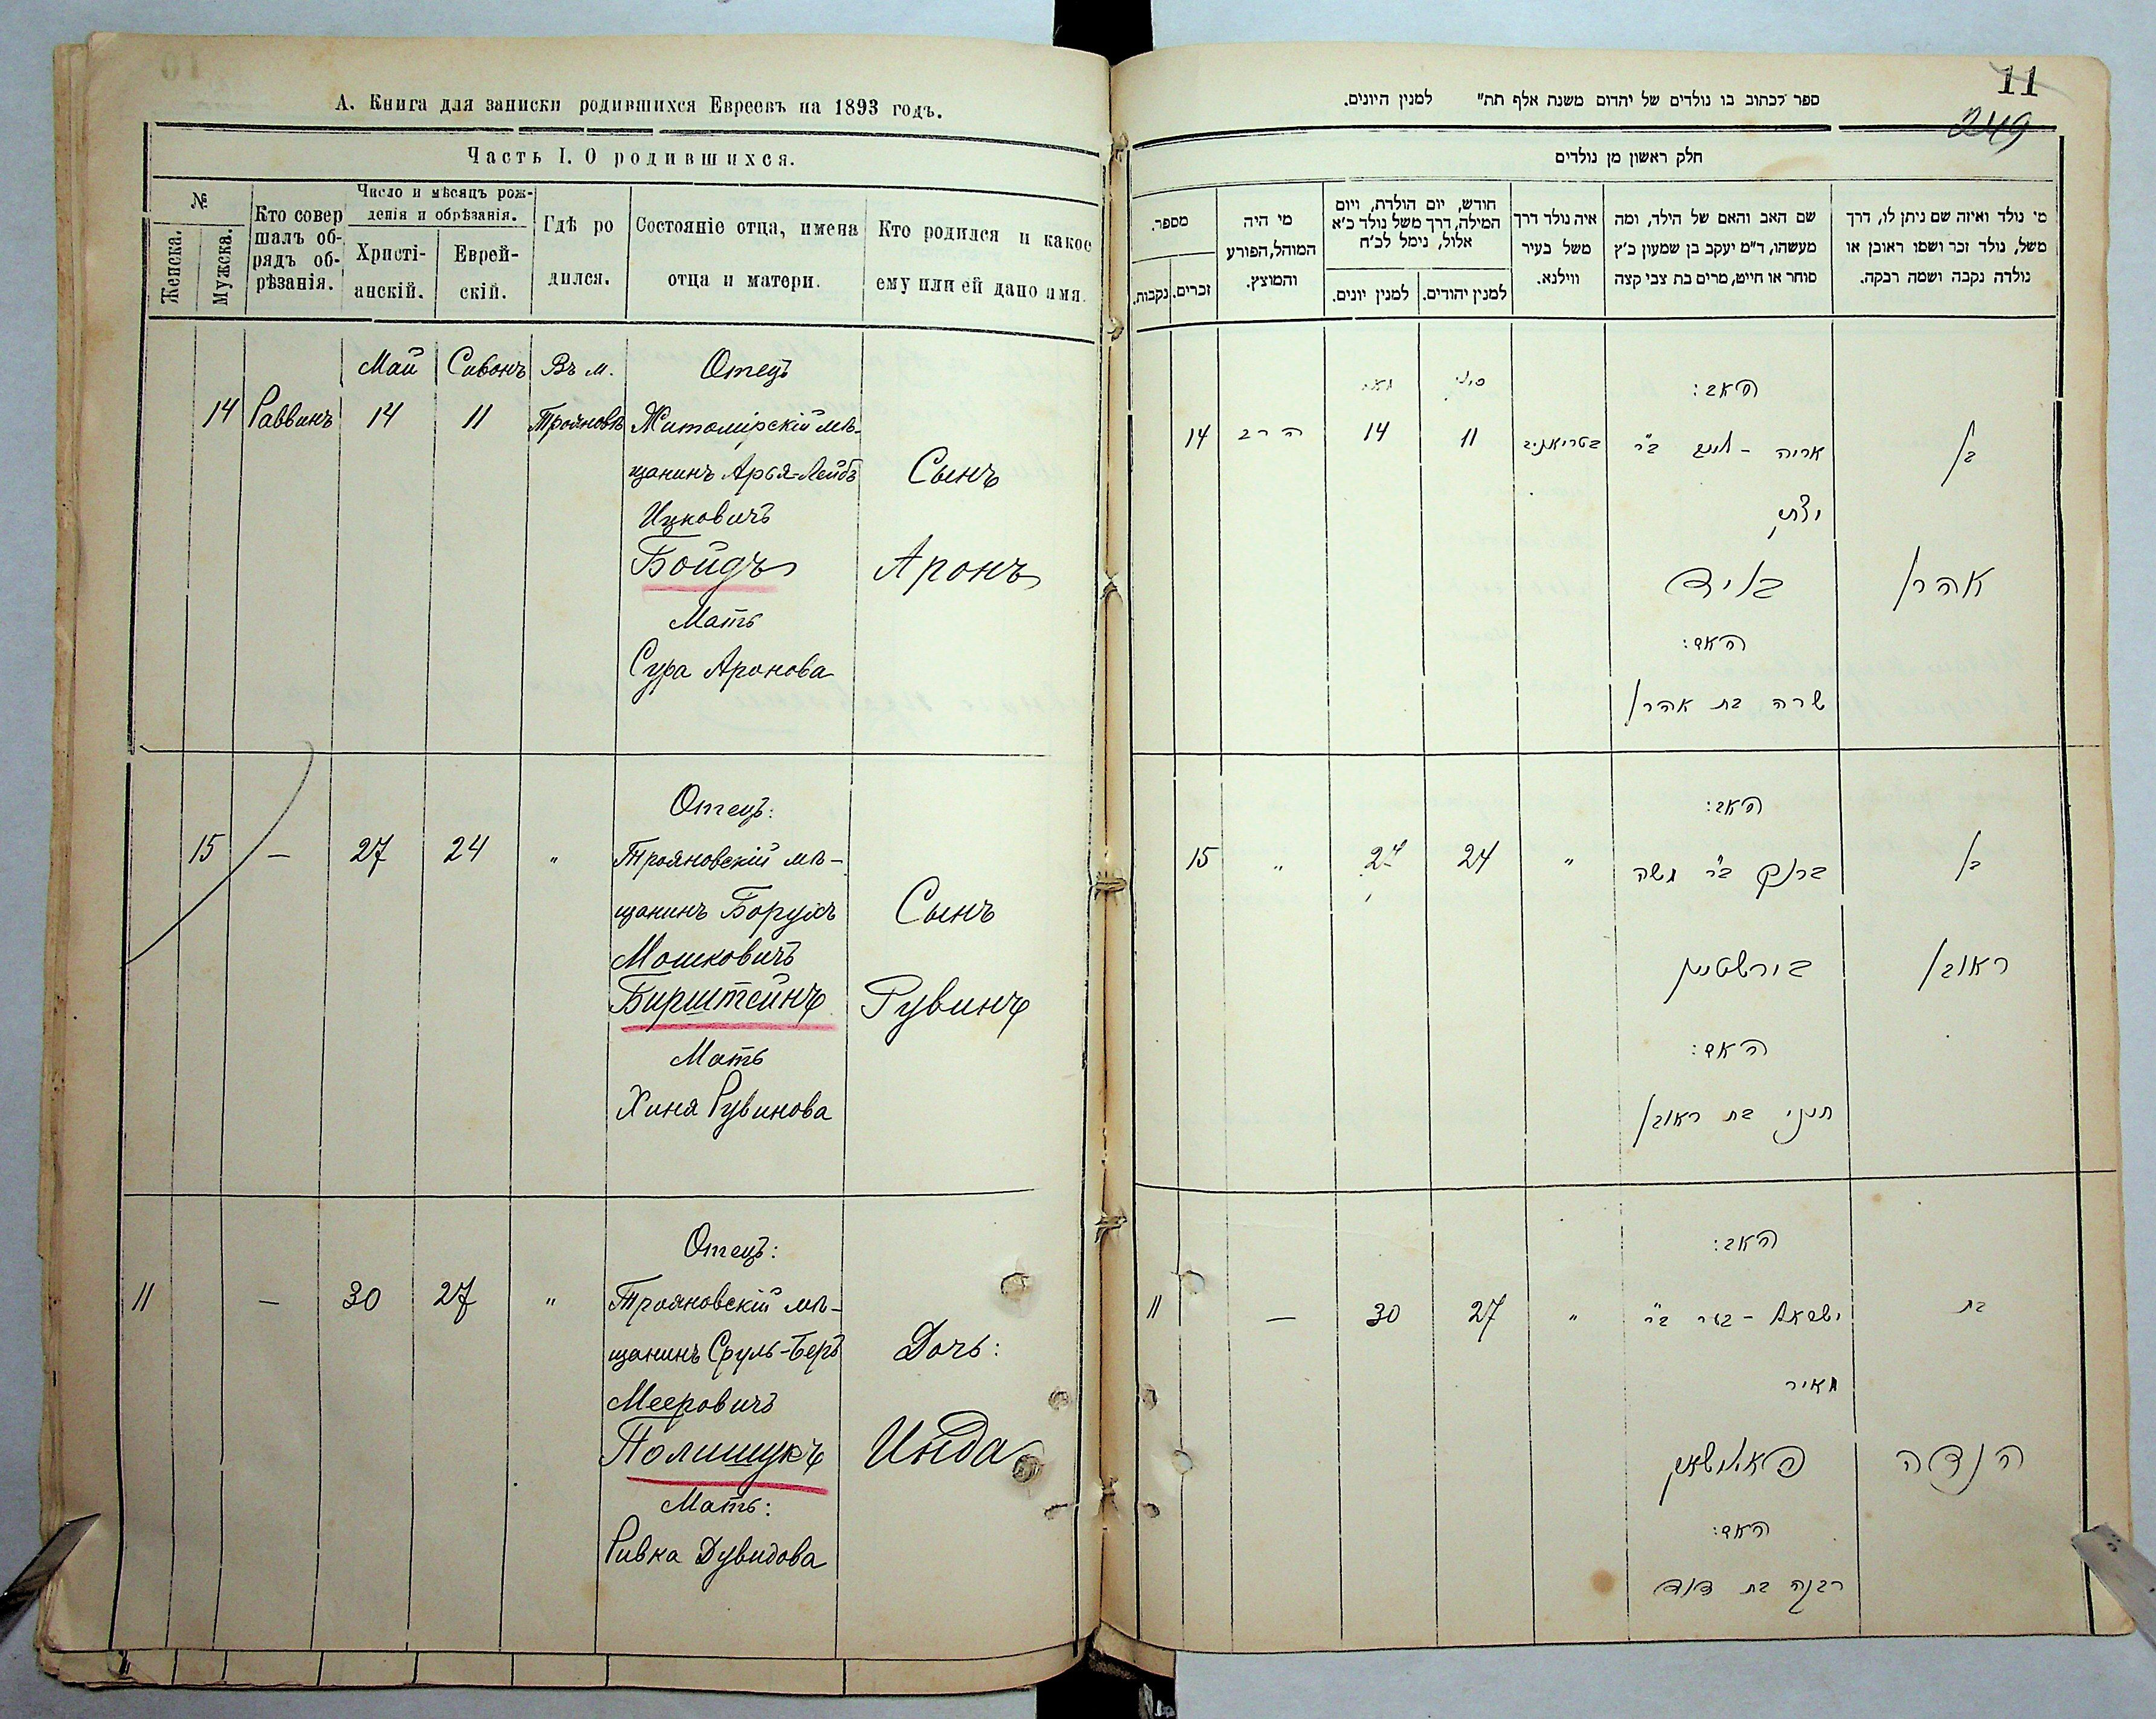 А. Книга для записки родившихся Евреевъ на 1893 годъ.
Часть I. О родившихся.
№
Женска.
Мужска.
Кто совер
шалъ об-
рядъ об-
рѣзанія.
Число и мѣсяцъ рож-
денія и обрѣзанія.
Христі-
анскій.
Еврей-
скій.
Гдѣ ро
дился.
Состояніе отца, имена
отца и матери.
Кто родился и какое
ему или ей дано имя.
Май Сивонъ Въ м. Отецъ
14 Раввинъ 14 11 Трояновѣ Житомірскій мѣ-
щанинъ Арья-Лейбъ Сынъ
Ицковичъ
Бойдъ Аронъ
Мать
Сура Аронова
Отецъ:
15 — 27 24 " Трояновскій мѣ-
щанинъ Борухъ Сынъ
Мошковичъ
Бирштейнъ Рувинъ
Мать
Хиня Рувинова
Отецъ:
11 — 30 27 " Трояновскій мѣ-
щанинъ Сруль-Беръ Дочь:
Мееровичъ
Полищукъ Инда
Мать:
Ривка Дувидова
11
249
ספר לכתוב בו נולדים של יהדום משנת אלף תת" למנין היונים.
חלק ראשון מן נולדים
מי נולד ואיזה שם ניתן לו, דרך
משל, נולד זכר ושמו ראובן או
נולדה נקבה ושמה רבקה.
שם האב והאם של הילד, ומה
מעשהו, ד"מ יעקב בן שמעון כ"ץ
סוחר או חייט, מרים בת צבי קצה
איה נולד דרך
משל בעיר
ווילנא.
חודש, יום הולדת, ויום
המילה, דרך משל נולד כ'א
אלול, נימל לכ'ח
למנין יהודים.
למנין יונים.
מי היה
המוהל, הפורע
והמוצץ.
מספר.
זכרים.
נקבות.
האב:
בן אריה - ליב ב"ר 11 14 הרב 14
יצחק
אהרן בויד
האם:
שרה בת אהרן
האב:
בן ברוך ב"ר משה " 24 27 " 15
ראובן בירשטיין
האם:
חיני בת ראובן
האב:
בת ישראל - בער ב"ר " 27 30 — 11
מאיר
הנדה פאלישוק
האם:
רבקה בת דוד